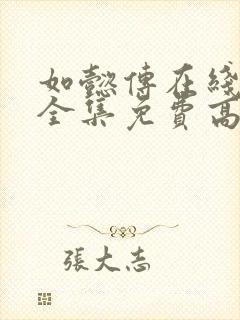 如懿傳在綫
全集免費高
張大志